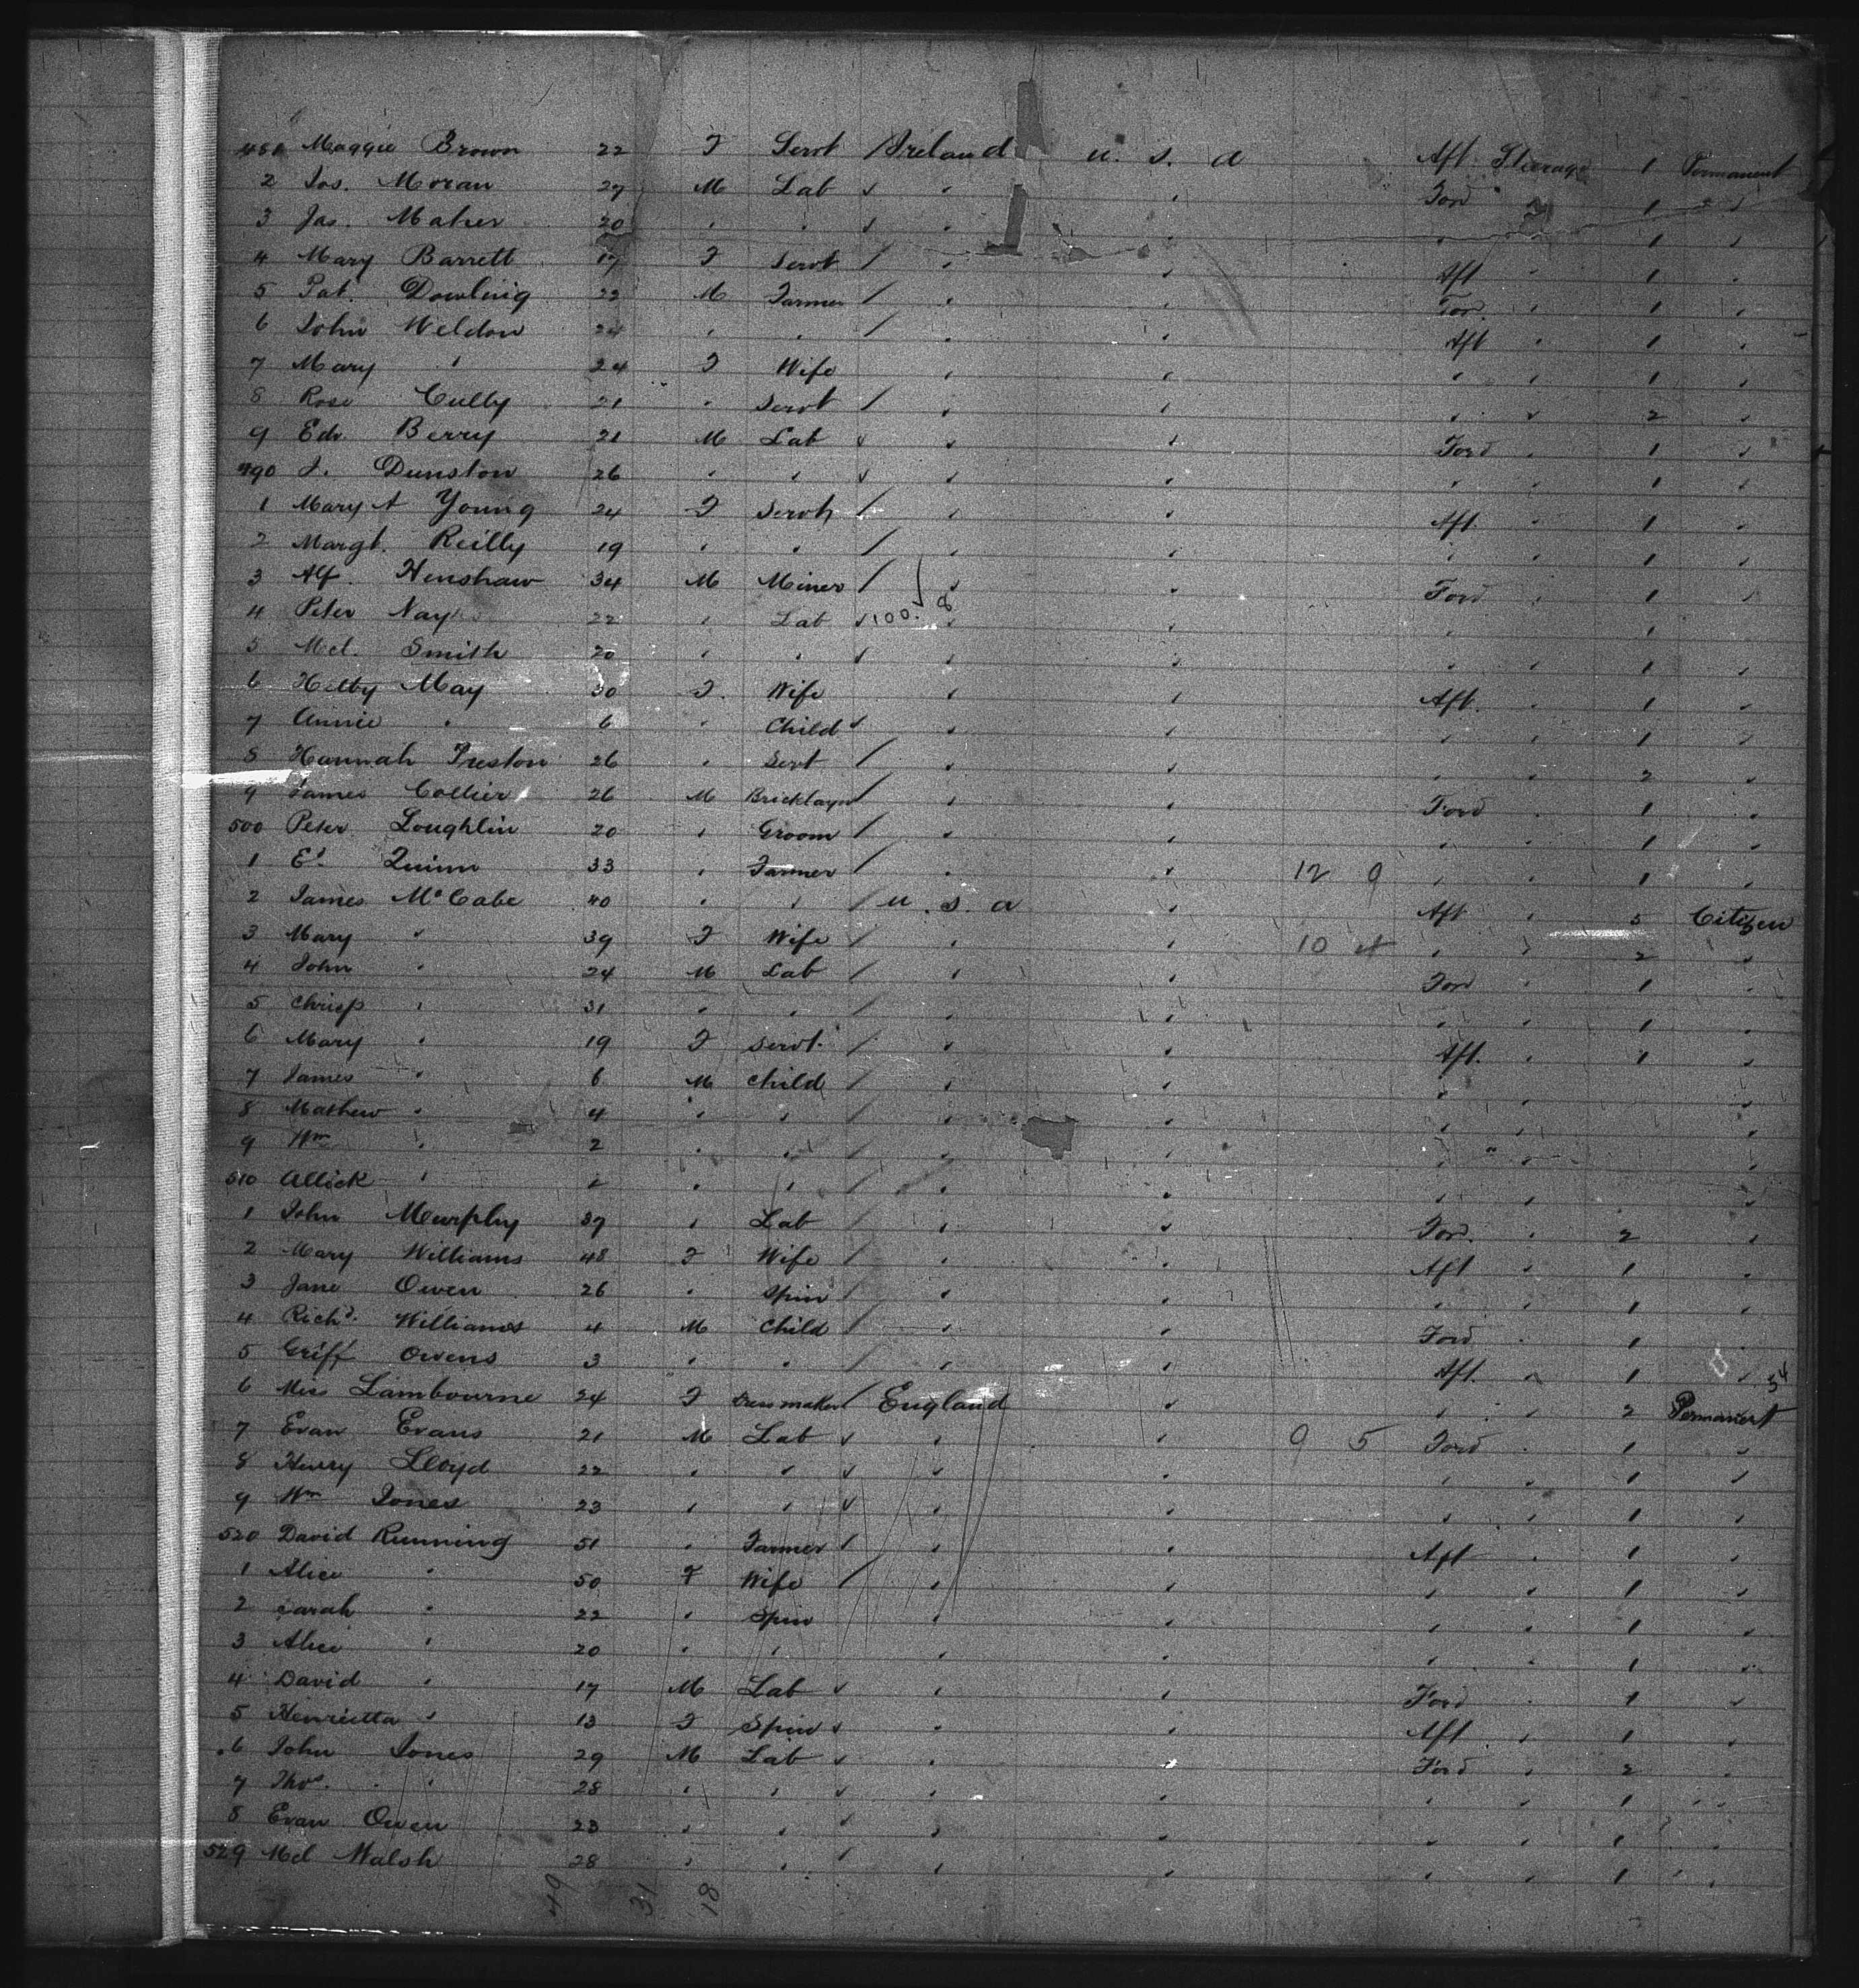 481 Maggie Brown 22 F Servt / Ireland U. S. A Aft. Steerage 1 Permanent
2 Jos. Moran 27 M Lab ✓ " " Ford " 1 "
3 Jas. Maher 20 " " ✓ " " " 1 "
4 Mary Barrett 17 F Servt / " " Aft " 1 "
5 Pat. Dowling 22 M Farmer / " " For. " 1 "
6 John Weldon 24 " " / " " Aft " 1 "
7 Mary " 24 F Wife " " " " 1 "
8 Rose Cully 21 " Servt / " " " " 2 "
9 Edw Berry 21 M Lab ✓ " " Ford " 1 "
490 J. Dunston 26 " " ✓ " " " " 1 "
1 Mary A Young 24 F Servt / " " Aft. " 1 "
2 Margt. Reilly 19 " " / " " " " 1 "
3 Alf. Henshaw 34 M Miner / " " Ford " 1 "
4 Peter Nay 22 " Lab ✓ 100. ✓ 8 " " " 1
5 Mcl. Smith 20 " " ✓ " " " " 1 "
6 Hetty May 30 F. Wife " " Aft. " 1 "
7 Annie " 6 " Child ✓ " " " " 1 "
8 Hannah Preston 26 " Servt / " " " " 2 "
9 James Collier 26 M Bricklayer / " " Ford " 1 "
500 Peter Loughlin 20 " Groom / " " " " 1 "
1 Ed Quinn 33 " Farmer / " " 12 9 " " 1 "
2 James McCabe 40 " " / U. S. A " Aft " 5 Citizen
3 Mary " 39 F Wife / " " 10 " " 2 "
4 John " 24 M Lab / " " Ford " 1 "
5 Chrisp " 31 " " / " " " " 1 "
6 Mary " 19 F Servt. / " " Aft. " 1 "
7 James " 6 M Child / " " " " "
8 Mathew " 4 " " / " " " " "
9 Wm " 2 " " / " " " " "
510 Allick " " " / " " " " "
1 John Murphy 37 " Lab / " " Ford. " 2 "
2 Mary Williams 48 F Wife / " " Aft " 1 "
3 Jane Owen 26 " Spin / " " " " 1 "
4 Richd. Williams 4 M Child / " " Ford " 1 "
5 Griff Owens 3 " " / " " Aft. " 1 " 34
6 Miss Lambourne 24 F Dressmaker / England " " " 2 Permanent
7 Evan Evans 21 M Lab ✓ " " 9 5 Ford " 1 "
8 Henry Lloyd 22 " " ✓ " " " " 1 "
9 Wm Jones 23 " " ✓ " " " " 1 "
520 David Running 51 " Farmer / " " Aft " 1 "
1 Alice " 50 F Wife / " " " " 1 "
2 Sarah " 22 " Spin " " " " 1 "
3 Alice " 20 " " " " " " 1 "
4 David " 17 M Lab ✓ " " Ford " 1 "
5 Henrietta " 13 F Spin ✓ " " Aft " 1 "
6 John Jones 29 M Lab ✓ " " Ford " 2 "
7 Thos. " 28 " " ✓ " " " " 1 "
8 Evan Owen 23 " " ✓ " " " " 1 "
529 Mcl Walsh 28 " " / " " " " 1 "
49 31 18